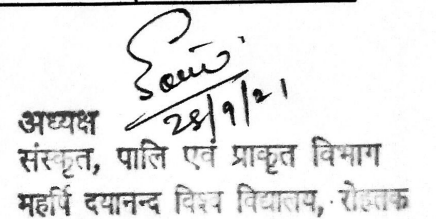 28/9/21
अध्यक्ष
संस्कृत, पालि एवं प्राकृत विभाग
महर्षि दयानन्द विश्व विद्यालय, रोहतक